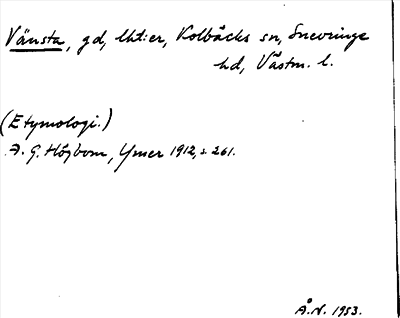 Vänsta, gd, lht:er, Kolbäcks sn, Snevringe
hd, Västm. l.
(Etymologi.)
A. G. Högbom, Ymer 1912, s. 261.
Å.N. 1953.